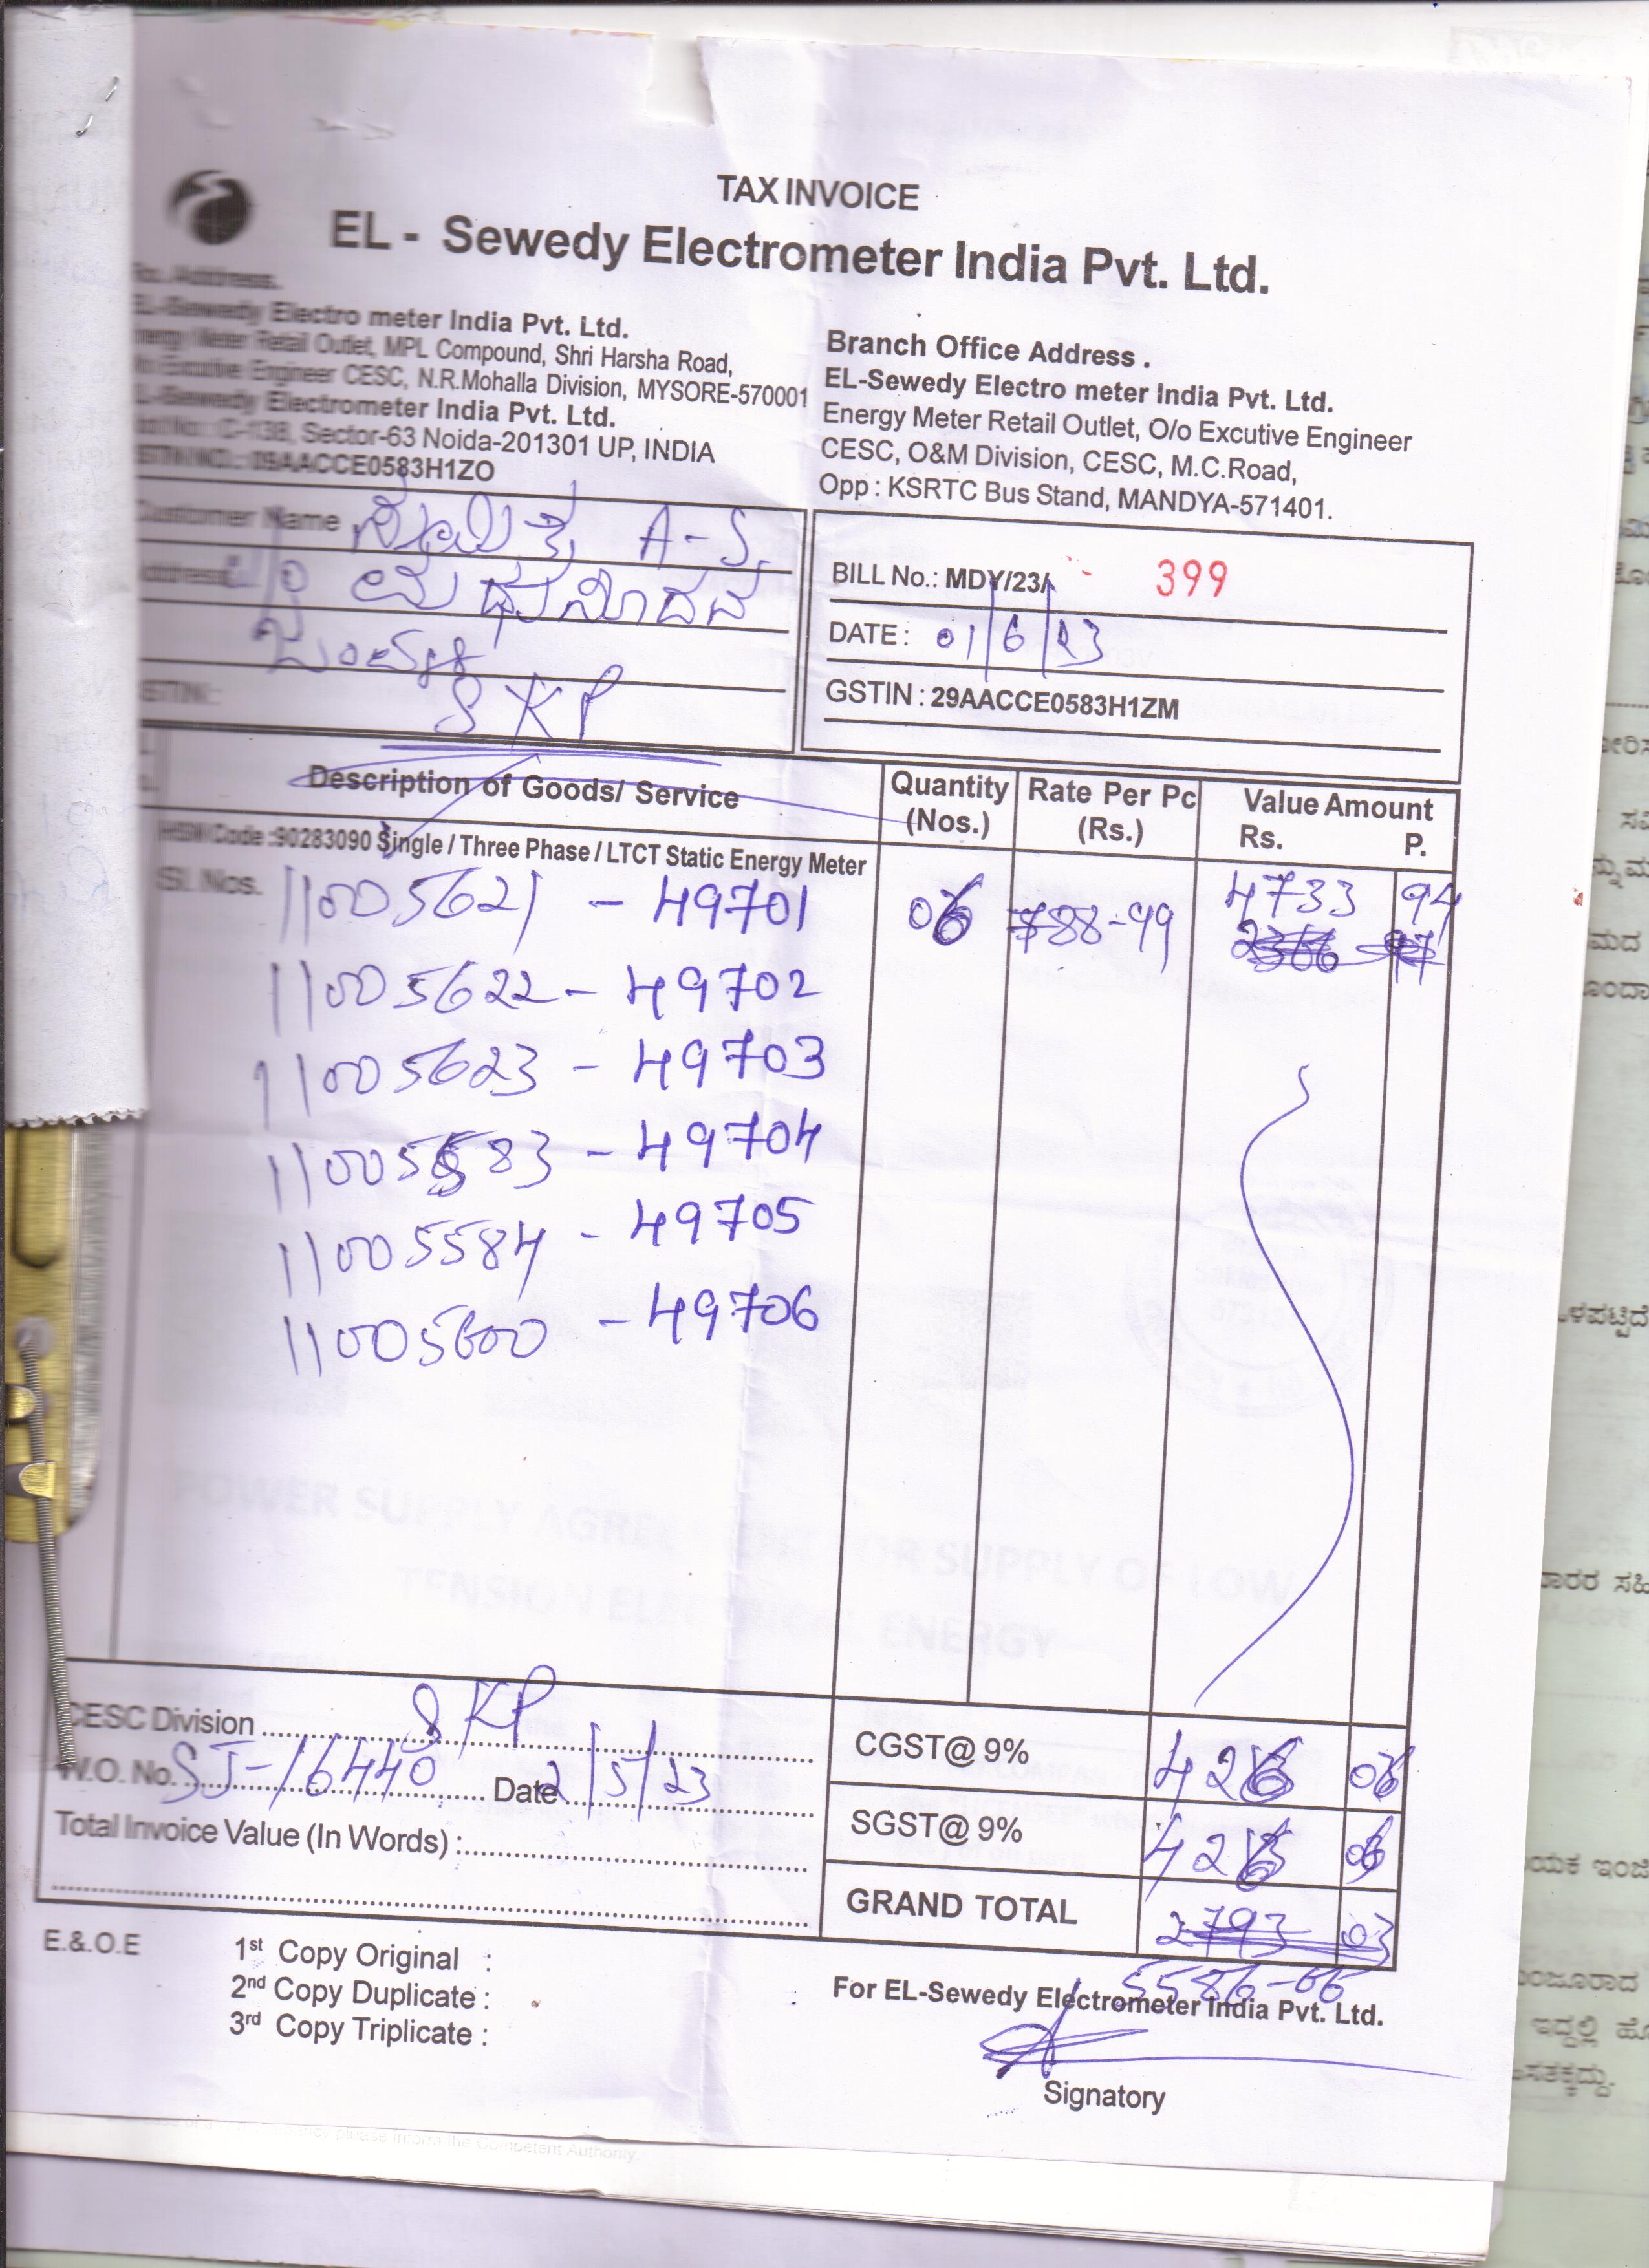 TAX INVOICE
EL - Sewedy Electrometer India Pvt. Ltd.
Address.
EL-Sewedy Electro meter India Pvt. Ltd.
Energy Meter Retail Outlet, MPL Compound, Shri Harsha Road,
Engineer CESC, N.R.Mohalla Division, MYSORE-570001
EL-Sewedy Electrometer India Pvt. Ltd.
C-138, Sector-63 Noida-201301 UP, INDIA
GSTIN NO.: 09AACCE0583H1ZO
Branch Office Address .
EL-Sewedy Electro meter India Pvt. Ltd.
Energy Meter Retail Outlet, O/o Excutive Engineer
CESC, O&M Division, CESC, M.C.Road,
Opp : KSRTC Bus Stand, MANDYA-571401.
Customer Name A-S,
Address
SKP
GSTIN:
BILL No.: MDY/23/ - 399
DATE : 01/6/23
GSTIN : 29AACCE0583H1ZM
Description of Goods/ Service Quantity (Nos.) Rate Per Pc (Rs.) Value Amount Rs. P.
HSN Code :90283090 Single / Three Phase / LTCT Static Energy Meter
Sl. Nos. 11005621 - 49701 06 788-99 4733 94
11005622 - 49702
11005623 - 49703
11005583 - 49704
11005584 - 49705
11005600 - 49706
CESC Division SKP
W.O. No. SJ-16440 Date 2/5/23
Total Invoice Value (In Words) :
CGST@ 9% 426 06
SGST@ 9% 426 06
GRAND TOTAL 2793 03
5586-06
E.&.O.E
1st Copy Original :
2nd Copy Duplicate :
3rd Copy Triplicate :
For EL-Sewedy Electrometer India Pvt. Ltd.
Signatory
POWER SUPPLY AGREEMENT FOR SUPPLY OF LOW
TENSION ELECTRICAL ENERGY
please inform the Competent Authority.